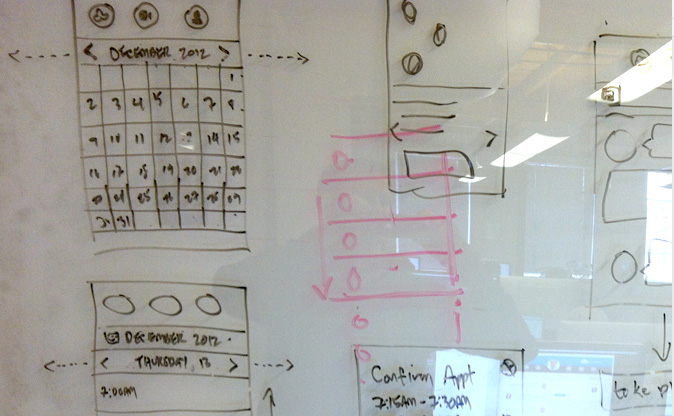 < DECEMBER 2012 >
1
2 3 4 5 6 7 8
9 10 11 12 14 15
16 17 18 19 20 21 22
23 24 25 26 27 28 29
30 31
DECEMBER 2012
< THURSDAY, 13 >
7:00AM
Confirm Appt
7:15AM - 7:30AM
to be